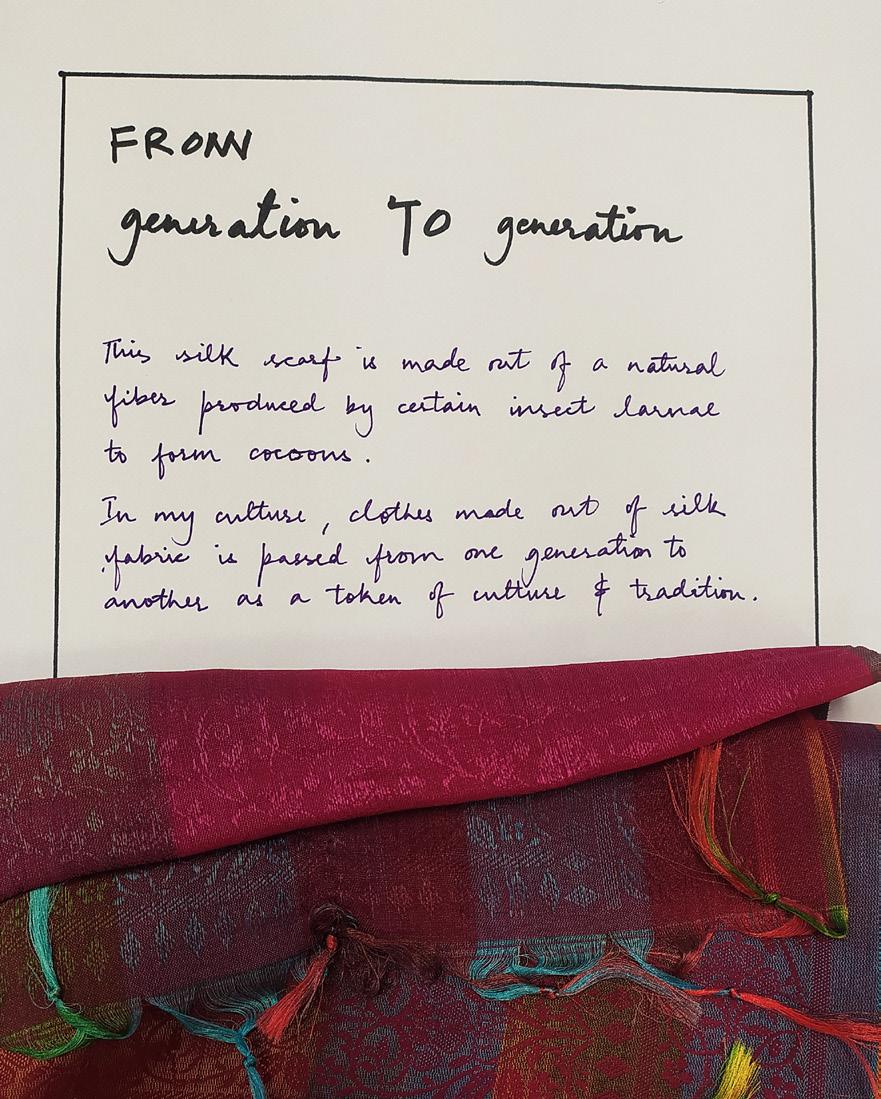 FROM
generation TO generation
This silk scarf is made out of a natural
fiber produced by certain insect larvae
to form cocoons.
In my culture, clothes made out of silk
fabric is passed from one generation to
another as a token of culture & tradition.